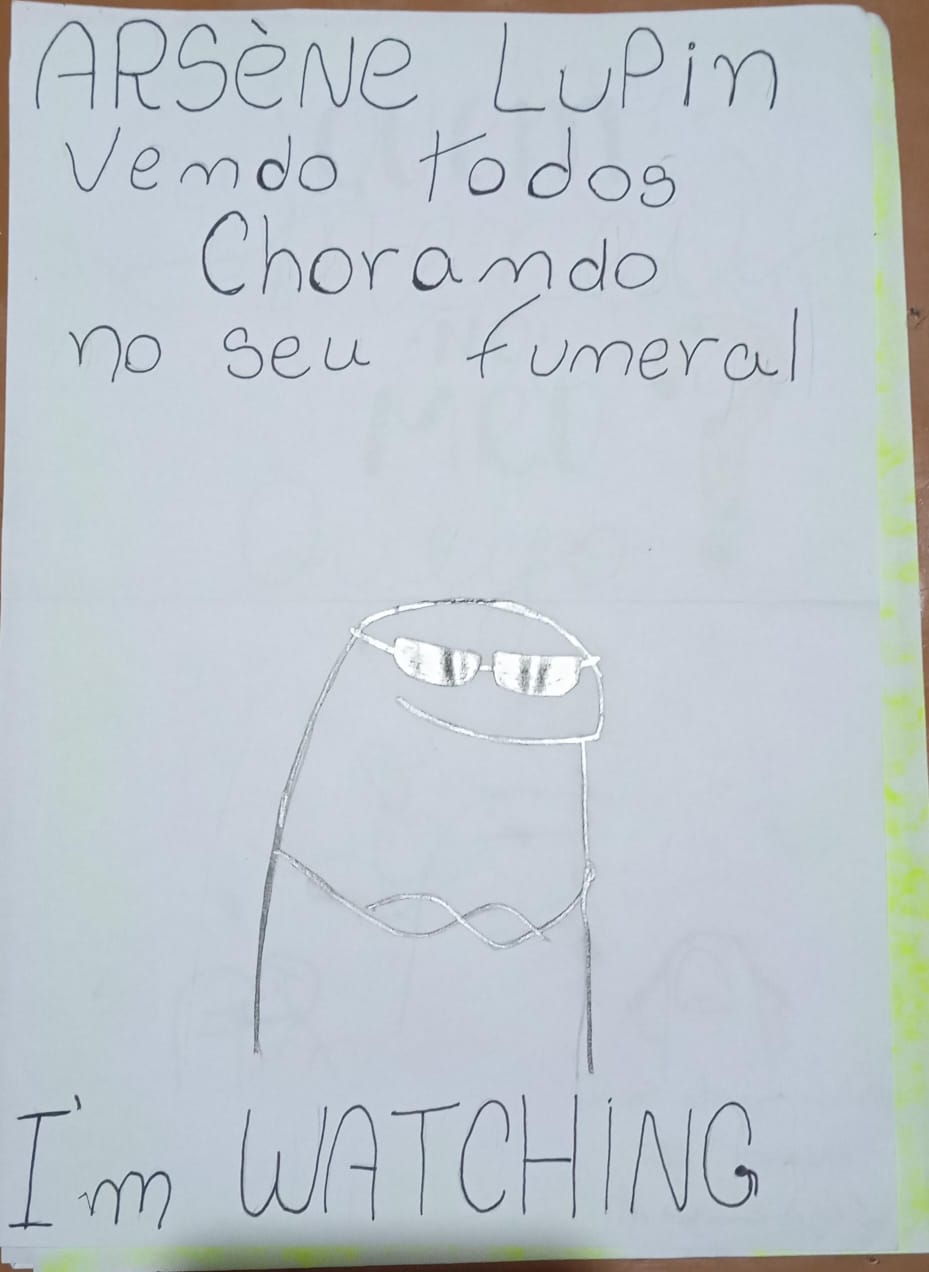 ARSèNe LuPin
Vendo todos
Chorando
no seu funeral
I'm WATCHiNG